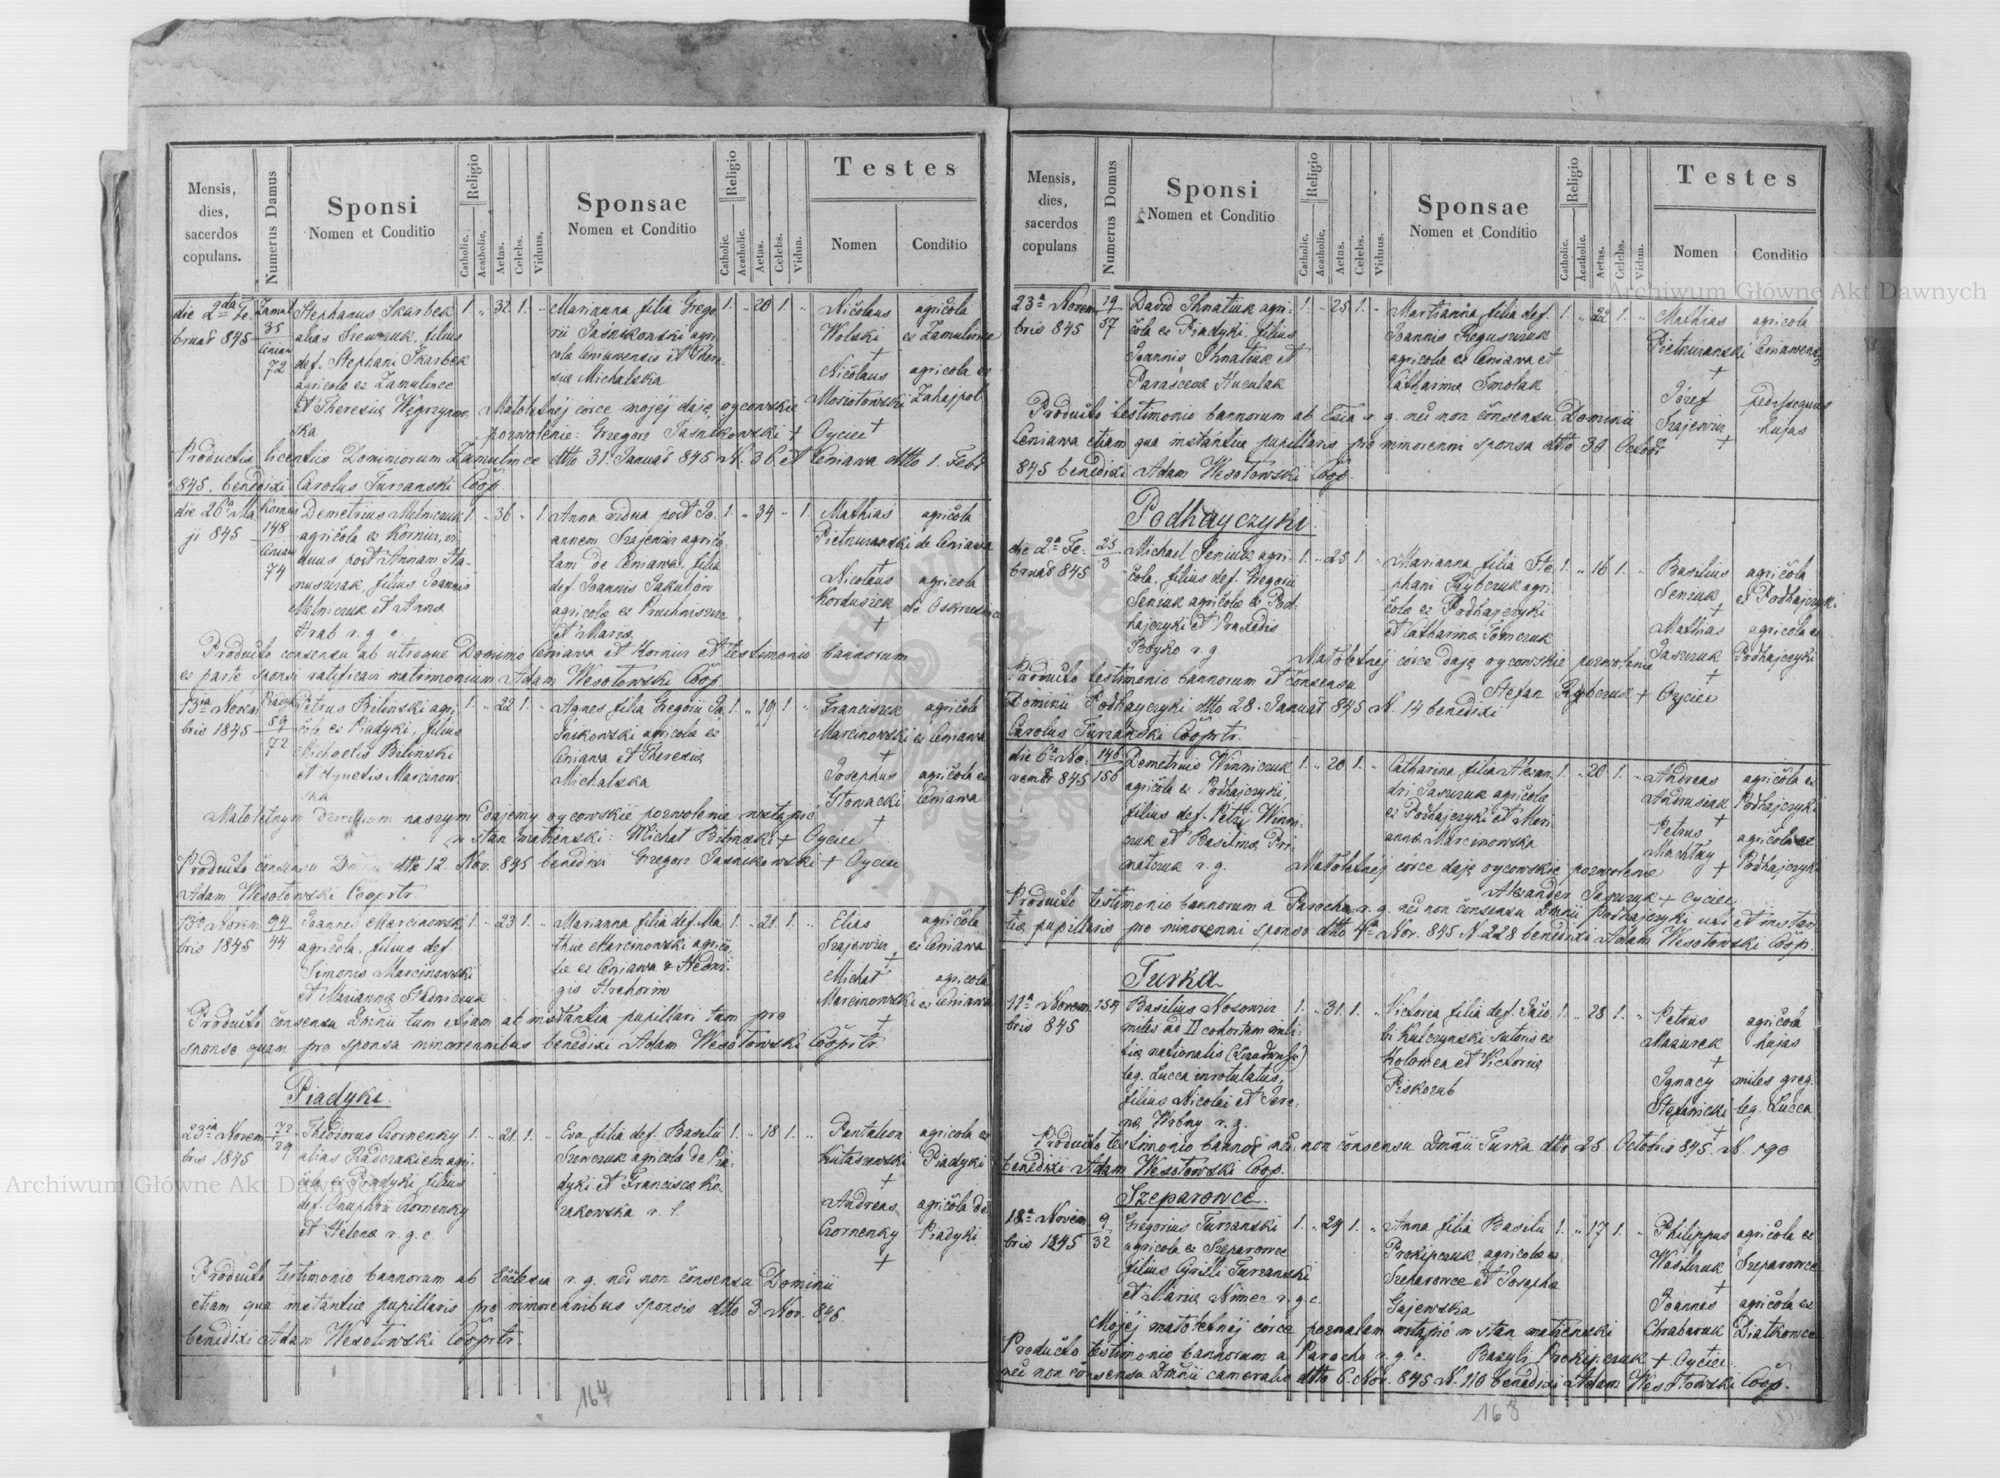 Mensis, dies, sacerdos copulans.
Numerus Damus
Sponsi
Nomen et Conditio
Religio
Catholic.
Acatholic.
Aetas.
Celebs.
Viduus.
Sponsae
Nomen et Conditio
Religio
Catholic.
Acatholic.
Aetas.
Celebs.
Vidua.
Testes
Nomen
Conditio
die 2da Fe-
bruar 845
35
72
Stephanus Skarbek
alias Szewczuk, filius
def. Stephani Skarbek
agricola ex Zamulince
et Theresia Węgrzynow-
ska
1. „ 32 1. „
Marianna filia Grego
rii Jaśnikowski agri-
cola Ceniavensis et There-
sia Michalska
1. „ 20 1. „
Nicolaus
Wolski
+
Nicolaus
Mosiołowski
+
agricola
ex Zamulince
agricola ex
Zahajpol
Małoletnéj córce mojéj daję oycowskie
pozwolenie: Grzegorz Jasnikowski + Oyciec
Productis licentiis Dominiorum Zamulince dtto 31. Januar 845 N. 36 et Ceniawa dtto 1. Febr
845. benedixi Carolus Turzanski Coop.
die 26a Ma-
ji 845
148
74
Demetrius Melniczuk
agricola ex Korniz, vi
duus post Annam Ha-
nuszczak, filius Joannis
Melniczuk et Anna
Hrab r. g. c.
1. „ 36 „ 1.
Anna vidua post Jo-
annem Szajewin agrico-
lam de Ceniawa, filia
def. Joannis
agricola ex
et Maria
1. „ 34 „ 1.
Mathias
Pietruzanski
+
Nicolaus
Korduszek
+
agricola
de Ceniawa
agricola
de Oskrzesince
Producto consensu ab utroque Dominio Ceniawa et Korniz et testimonio bannorum
ex parte sponsi ratificavi matrimonium Adam Wesołowski Coop
13na Novem
bris 1845
59
72
Petrus Biliński agri-
cola ex Piadyki, filius
Michaelis Bilinski
et Agnetis Marcinow
ska
1. „ 22 1. „
Agnes filia Gregorii Ja-
śnikowski agricola ex
Ceniawa et Theresia
Michalska
1. „ 19 1. „
Franciszek
Marcinowski
+
Josephus
Głowacki
+
agricola
ex Ceniawa
agricola ex
Ceniawa
Małoletnym dzieciom naszym dajemy oycowskie pozwolenie wstąpić
w stan małżenski: Michał Bilinski + Oyciec
Producto consensu dtto 12. Nov. 845 benedixi Grzegorz Jasnikowski + Oyciec
Adam Wesołowski Cooprtr
13a Novem
bris 1845
94
44
Joannes Marcinowski
agricola, filius def.
Simonis Marcinowski
et Marianna Stadniczuk
1. „ 23 1. „
Marianna filia def. Ma
thiae Marcinowski agrico
lae ex Ceniawa & Hedwi-
gis Hrehorin
1. „ 21. 1. „
Elias
Szajewin
+
Michał
Marcinowski
+
agricola
ex Ceniawa
agricola
ex Ceniawa
Producto consensu Dminii tum etiam ab instantia pupillari tam pro
sponso quam pro sponsa minorennibus benedixi Adam Wesołowski Cooprtr.
Piadyki.
23na Novem-
bris 1845
72
29
Theodorus Czornenky
alias Radczak
cola ex Piadyki, filius
def. Onuphrii Czornenky
et Helena r. g. c
1. „ 21. 1. „
Eva filia def. Basilii
Szewczuk agricola de Pia-
dyki et Francisca Ko-
zakowska r. l
1. „ 18 1. „
Pantaleon
+
Andreas
Czornenky
+
agricola ex
Piadyki
agricola de
Piadyki
Producto testimonio bannorum ab Ecclesia r. g. nec non consensu Dominii
etiam qua instantiae pupillaris pro minorennibus sponsis dtto 3 Nov. 845
benedixi Adam Wesołowski Cooprtr.
164
Mensis, dies, sacerdos copulans
Numerus Domus
Sponsi
Nomen et Conditio
Religio
Catholic.
Acatholic.
Aetas.
Celebs.
Viduus.
Sponsae
Nomen et Conditio
Religio
Catholic.
Acatholic.
Aetas.
Celebs.
Vidua.
Testes
Nomen
Conditio
23a Novem
bris 845
19
57
David Ihnatiuk agri-
cola ex Piadyki, filius
Joannis Ihnatiuk et
Parascewa Huculak
1. „ 25 1. „
Martianna, filia def.
Joannis Reguszczuk
agricola ex Ceniawa et
Catharina Smolak
1. „ 22 1. „
Mathias
Pietruzanski
+
Józef
Szajewin
+
agricola
Ceniawensis
hujas
Producto testimonio bannorum ab Ecclesia r. g. nec non consensu Dominii
Ceniawa etiam qua instantia pupillaris pro minorenni sponsa dtto 30 Octobr
845 benedixi Adam Wesołowski Coop.
Podhayczyki
die 2a Fe-
bruar 845
25
3
Michael Seniuk agri-
cola, filius def. Gregorii
Seniuk agricola ex Pod-
hajczyki et Praxedis
Boyko r. g.
1. „ 25 1. „
Marianna filia Ste
phani Rybczuk agri-
cola ex Podhajczyki
et Catharina Tomczuk
1. „ 16 1. „
Basilius
Seniuk
+
Mathias
Jaszczuk
+
agricola
ex Podhajczyki
agricola ex
Podhajczyki
Małoletnéj córce daję oycowskie pozwolenie
Stefan Rybczuk + Oyciec
Producto testimonio bannorum et consensu
Dominii Podhayczyki dtto 28. Januar 845 N. 14 benedixi
Carolus Turzański Cooprtr.
die 6a No-
vembr 845
146
156
Demetrius Winniczuk
agricola ex Podhajczyki,
filius def. Petri Winni-
czuk et Basilina Pri-
matczuk r. g.
1. „ 20 1. „
Catharina filia Alexan-
dri Jaszczuk agricola
ex Podhajczyki et Mari-
anna Marcinowska
1. „ 20 1. „
Andreas
Andrusiak
+
Petrus
+
agricola ex
Podhajczyki
agricola ex
Podhajczyki
Małoletnéj córce daję oycowskie pozwolenie
Alexander Jaszczuk + oyciec
Producto testimonio bannorum a Parocho r. g. nec non consensu Dminii Podhajczyki uti et instan-
tia pupillaris pro minorenni sponso dtto 4a Nov. 845 N 228 benedixi Adam Wesołowski Coop.
Turka
11a Novem
bris 845
154
Basilius Nosowin
miles ad II cohortam mili-
tiae nationalis
leg. Lucca inrotulatus,
filius Nicolai et Ire-
na Wrbny r. g.
1. „ 31. 1. „
Victoria filia def. Jaco
bi Kulczynski sutoris ex
Kolomea et Victoria
Piskozub
1. „ 28 1. „
Petrus
Mazurek
+
Ignacy
Stefanicki
+
agricola
hujas
miles greg.
leg. Lucca
Producto testimonio bannor nec non consensu Dminii Turka dtto 25. Octobris 845 N. 190
benedixi Adam Wesołowski Coop.
Szeparowce.
18a Novem
bris 1845
9
32
Gregorius Turzanski
agricola ex Szeparowce
filius Cyrilli Turzanski
et Maria Nimec r. g c.
1. „ 29 1. „
Anna filia Basilii
Prokipczuk agricola ex
Szeparowce et Josepha
Gajewska
1. „ 17 1. „
Philippus
Wasilczuk
+
Joannes
Chrabaruk
+
agricola ex
Szeparowce
agricola ex
Diatkowce
Mojéj małoletnéj córce pozwalam wstąpić w stan małżenski
Bazyli Prokipczuk + Oyciec
Producto testimonio bannorum a Parocho r. g. c.
nec non consensu Dminii cameralis dtto 6. Nov. 845 N. 110 benedixi Adam Wesołowski Coop.
163
Archiwum Główne Akt Dawnych
Archiwum Główne Akt Dawnych